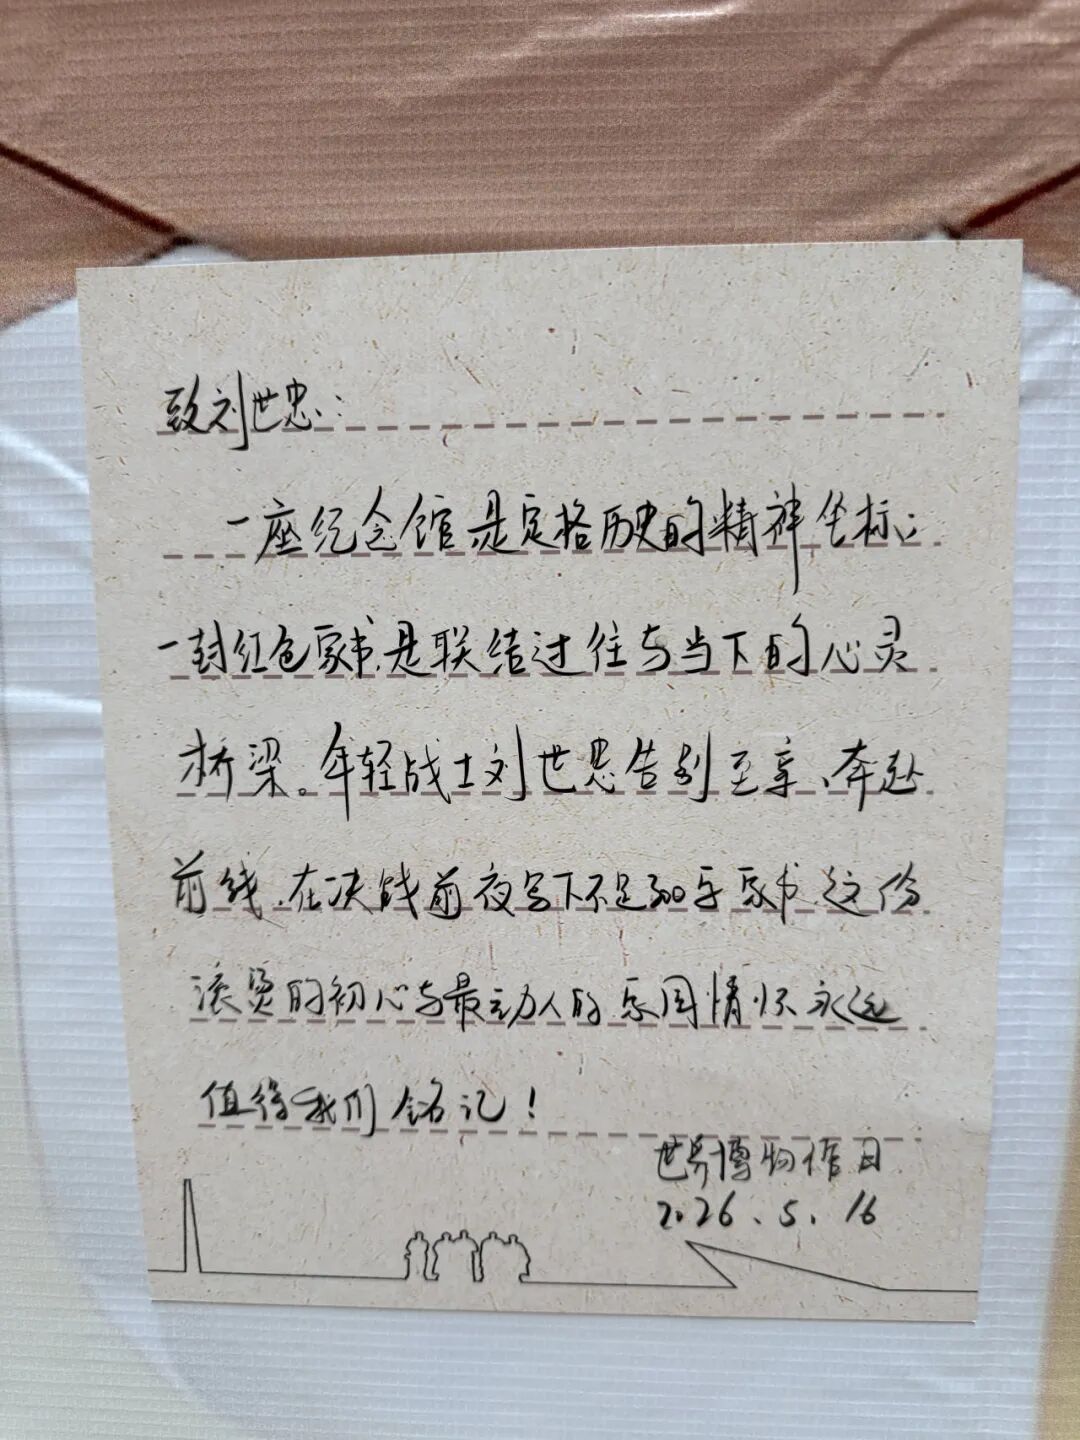 致刘世忠：
一座纪念馆是定格历史的精神坐标；
一封红色家书，是联结过往与当下的心灵
桥梁。年轻战士刘世忠告别至亲、奔赴
前线，在决战前夜写下不足300字家书，这份
滚烫的初心与最动人的家国情怀永远
值得我们铭记！
世界博物馆日
2026.5.16